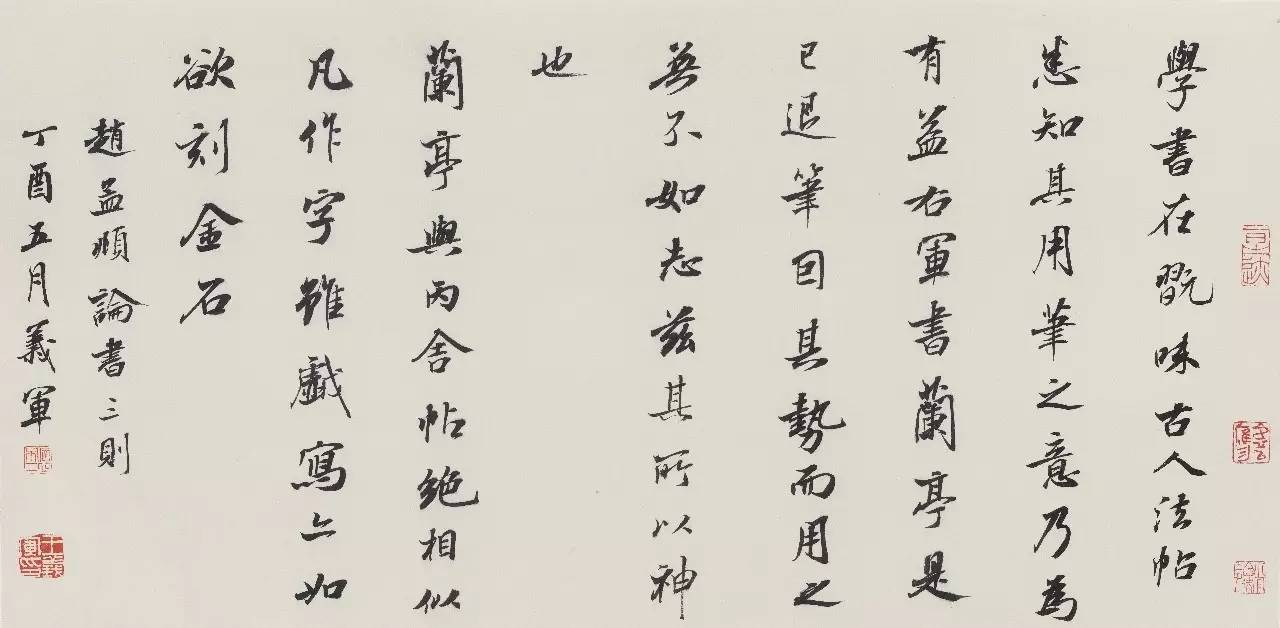 學書在翫味古人法帖
悉知其用筆之意乃為
有益右軍書蘭亭是
已退筆因其勢而用之
無不如志茲其所以神
也
蘭亭與丙舍帖絶相似
凡作字雖戲寫亦如
欲刻金石
趙孟頫論書三則
丁酉五月義軍